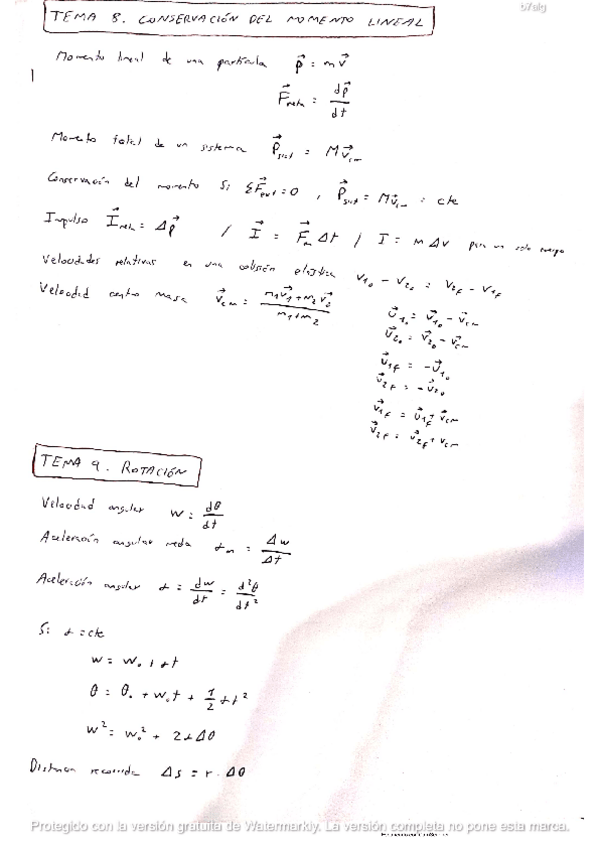 b7elg
TEMA 8. CONSERVACIÓN DEL MOMENTO LINEAL
Momento lineal de una partícula p⃗ = m v⃗
F⃗neta = dp⃗/dt
Momento total de un sistema P⃗sist = M v⃗cm
Conservación del momento Si ΣF⃗ext = 0 , P⃗sist = M v⃗cm = cte
Impulso I⃗neta = Δp⃗ / I⃗ = F⃗m Δt / I = m Δv para un solo cuerpo
Velocidades relativas en una colisión elástica v₁₀ - v₂₀ = v₂f - v₁f
Velocidad centro masa v⃗cm = (m₁v⃗₁ + m₂v⃗₂)/(m₁ + m₂)
u⃗₁₀ = v⃗₁₀ - v⃗cm
u⃗₂₀ = v⃗₂₀ - v⃗cm
u⃗₁f = -u⃗₁₀
u⃗₂f = -u⃗₂₀
v⃗₁f = u⃗₁f + v⃗cm
v⃗₂f = u⃗₂f + v⃗cm
TEMA 9. ROTACIÓN
Velocidad angular w = dθ/dt
Aceleración angular media αm = Δw/Δt
Aceleración angular α = dw/dt = d²θ/dt²
Si α = cte
w = w₀ + αt
θ = θ₀ + w₀t + 1/2 αt²
w² = w₀² + 2αΔθ
Distancia recorrida Δs = r · Δθ
Protegido con la versión gratuita de Watermarkly. La versión completa no pone esta marca.